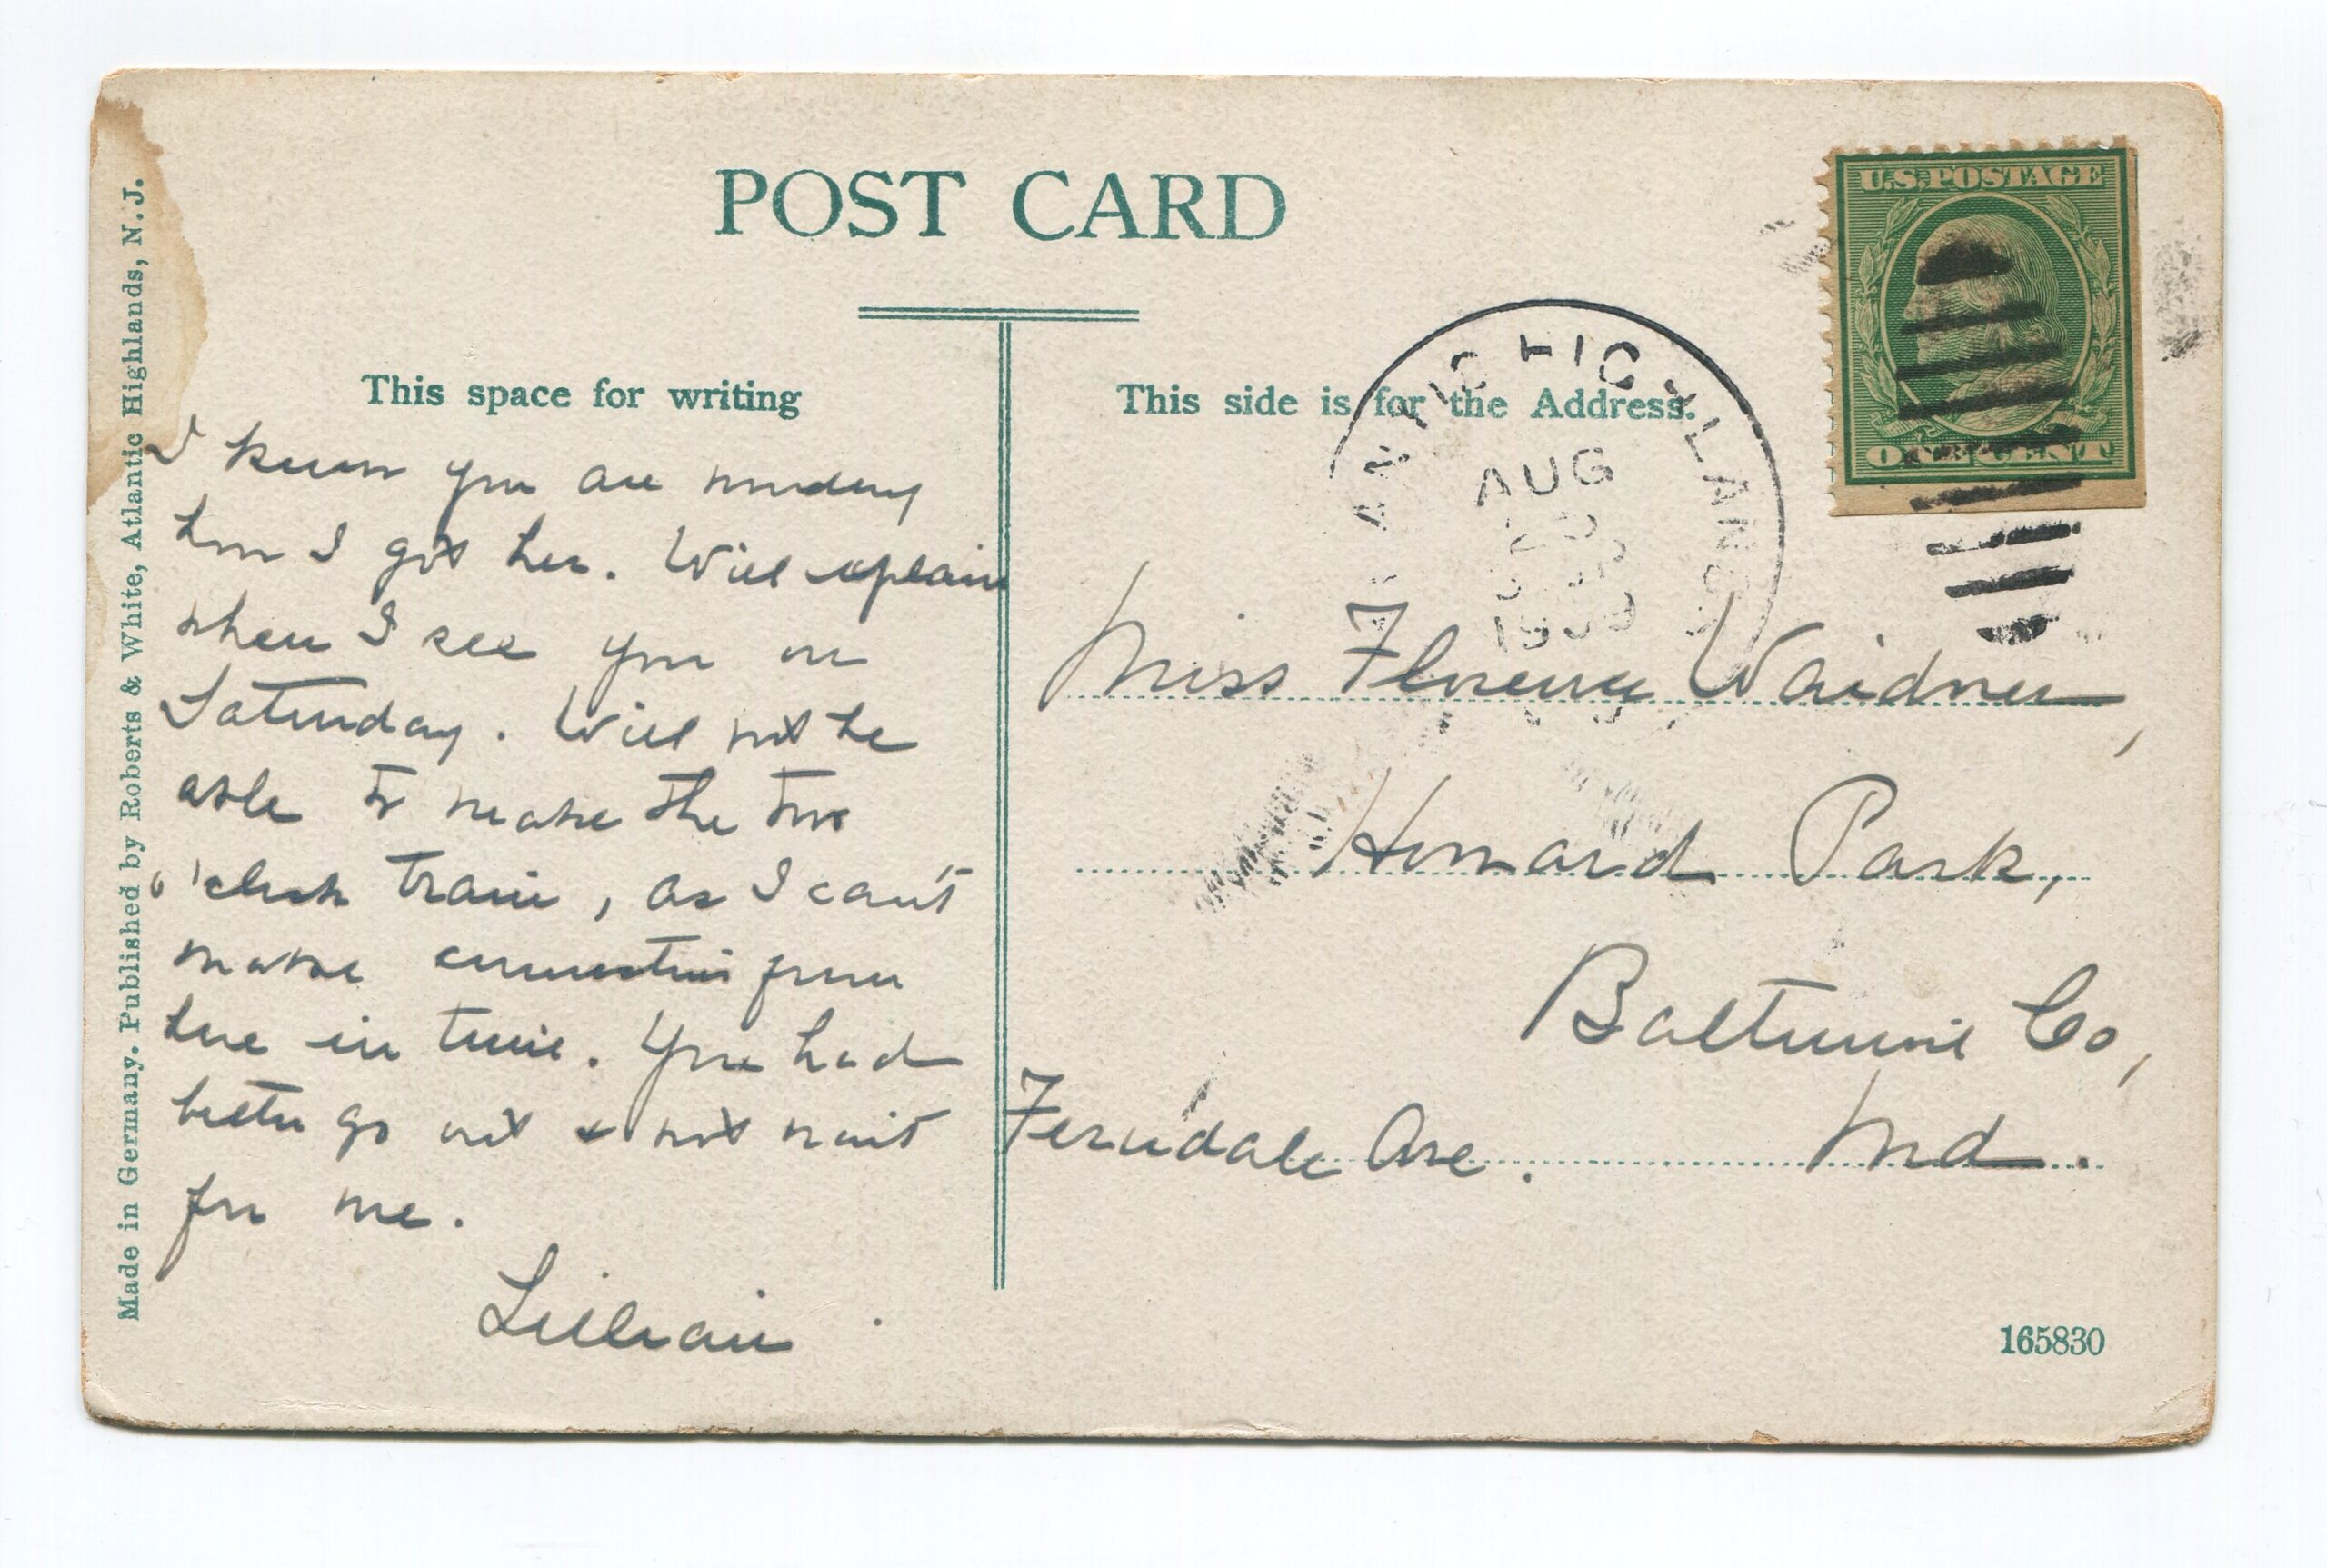 POST CARD
This space for writing
I know you are wondering
how I got her. Will explain
when I see you on
Saturday. Will not be
able to make the two
o'clock train, as I can't
make connection from
here in time. You had
better go out & not wait
for me.
Lillian
This side is for the Address.
AUG
1909
U.S. POSTAGE
ONE CENT
Miss Florence Waidner,
Howard Park,
Baltimore Co,
Ferndale Ave. Md.
165830
Made in Germany. Published by Roberts & White, Atlantic Highlands, N. J.